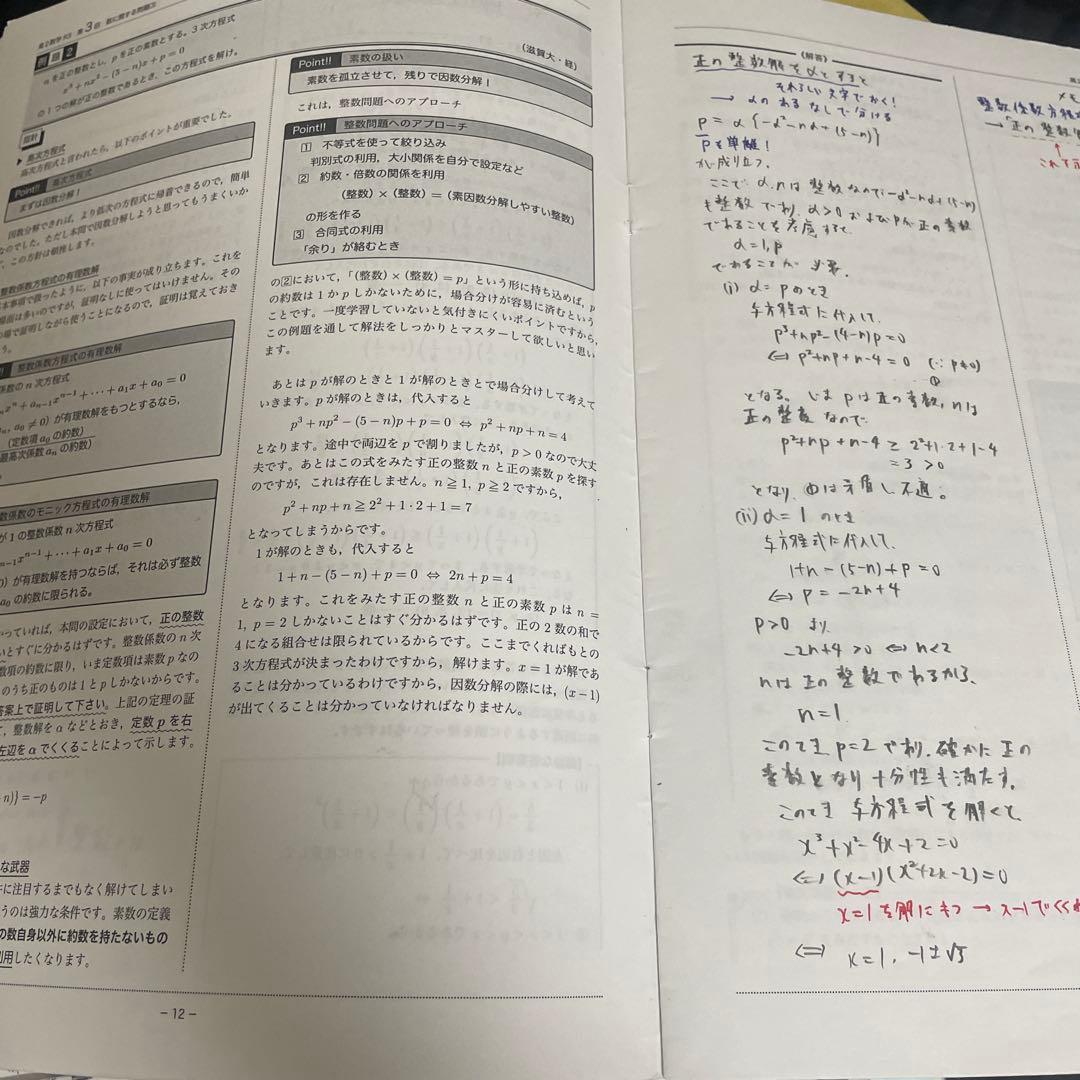 高2数学PS 第3回 数に関する問題③
例題2
nを正の整数とし，pを正の素数とする。3次方程式
x³+nx²−(5−n)x+p=0
の1つの解が正の整数であるとき，この方程式を解け。
（滋賀大・経）
指針
▶ 高次方程式
高次方程式と言われたら，以下のポイントが重要でした。
Point!! 高次方程式
まずは因数分解！
因数分解できれば，より低次の方程式に帰着できるので，簡単
なのでした。ただし本問で因数分解しようと思ってもうまくいか
，この方針は頓挫します。
整数係数方程式の有理数解
本事項で扱ったように，以下の事実が成り立ちます。これを
場面は多いのですが，証明なしに使ってはいけません。その
の場で証明しながら使うことになるので，証明は覚えておき
う。
整数係数方程式の有理数解
係数の n 次方程式
xⁿ+aₙ₋₁xⁿ⁻¹+⋯+a₁x+a₀=0
, a₀≠0）が有理数解をもつとするなら，
（定数項 a₀ の約数）
最高次係数 aₙ の約数）
数係数のモニック方程式の有理数解
が1の整数係数 n 次方程式
ₙ₋₁xⁿ⁻¹+⋯+a₁x+a₀=0
0）が有理数解を持つならば，それは必ず整数
a₀ の約数に限られる。
かっていれば，本問の設定において，正の整数
いとすぐに分かるはずです。整数係数の n 次
数項の約数に限り，いま定数項は素数 p なの
のうち正のものは1と p しかないからです。
答案上で証明して下さい。上記の定理の証
て，整数解を α などとおき，定数 p を右
左辺を α でくくることによって示します。
n)}=−p
な武器
に注目するまでもなく解けてしまい
うのは強力な条件です。素数の定義
の数自身以外に約数を持たないもの
用したくなります。
Point!! 素数の扱い
素数を孤立させて，残りで因数分解！
これは，整数問題へのアプローチ
Point!! 整数問題へのアプローチ
1 不等式を使って絞り込み
判別式の利用，大小関係を自分で設定など
2 約数・倍数の関係を利用
（整数）×（整数）=（素因数分解しやすい整数）
の形を作る
3 合同式の利用
「余り」が絡むとき
の2において，「（整数）×（整数）= p」という形に持ち込めば，p
の約数は1か p しかないために，場合分けが容易に済むという
ことです。一度学習していないと気付きにくいポイントですから，
この例題を通して解法をしっかりとマスターして欲しいと思い
ます。
あとは p が解のときと1が解のときとで場合分けして考えて
いきます。p が解のときは，代入すると
p³+np²−(5−n)p+p=0 ⇔ p²+np+n=4
となります。途中で両辺を p で割りましたが，p>0 なので大丈
夫です。あとはこの式をみたす正の整数 n と正の素数 p を探す
のですが，これは存在しません。n≧1, p≧2 ですから，
p²+np+n≧2²+1・2+1=7
となってしまうからです。
1が解のときも，代入すると
1+n−(5−n)+p=0 ⇔ 2n+p=4
となります。これをみたす正の整数 n と正の素数 p は n=
1, p=2 しかないことはすぐ分かるはずです。正の2数の和で
4になる組合せは限られているからです。ここまでくればもとの
3次方程式が決まったわけですから，解けます。x=1 が解であ
ることは分かっているわけですから，因数分解の際には，(x−1)
が出てくることは分かっていなければなりません。
− 12 −
（解答）
正の整数解をαとすると
それらしい文字でかく！
→ αのあるなしで分ける
p = α{−α²−nα+(5−n)}
pを単離！
が成り立つ。
ここで α, n は整数なので −α²−nα+(5−n)
も整数であり, α>0 および p が正の素数
であることを考慮すると
α=1, p
であることが必要。
(i) α=p のとき
与方程式に代入して,
p³+np²−(4−n)p=0
⇔ p²+np+n−4=0 (∵ p≠0)
①
となる。いま pは正の素数, nは
正の整数なので
p²+np+n−4 ≧ 2²+1・2+1−4
=3>0
となり, ①は矛盾し不適。
(ii) α=1 のとき
与方程式に代入して,
1+n−(5−n)+p=0
⇔ p=−2n+4
p>0 より
−2n+4>0 ⇔ n<2
nは正の整数であるから,
n=1
このとき p=2 であり, 確かに正の
素数となり十分性も満たす。
このとき与方程式を解くと,
x³+x²−4x+2=0
⇔ (x−1)(x²+2x−2)=0
x=1を解にもつ → x−1でくくれ
⇔ x=1, −1±√3
整数係数方程
→「正の整数